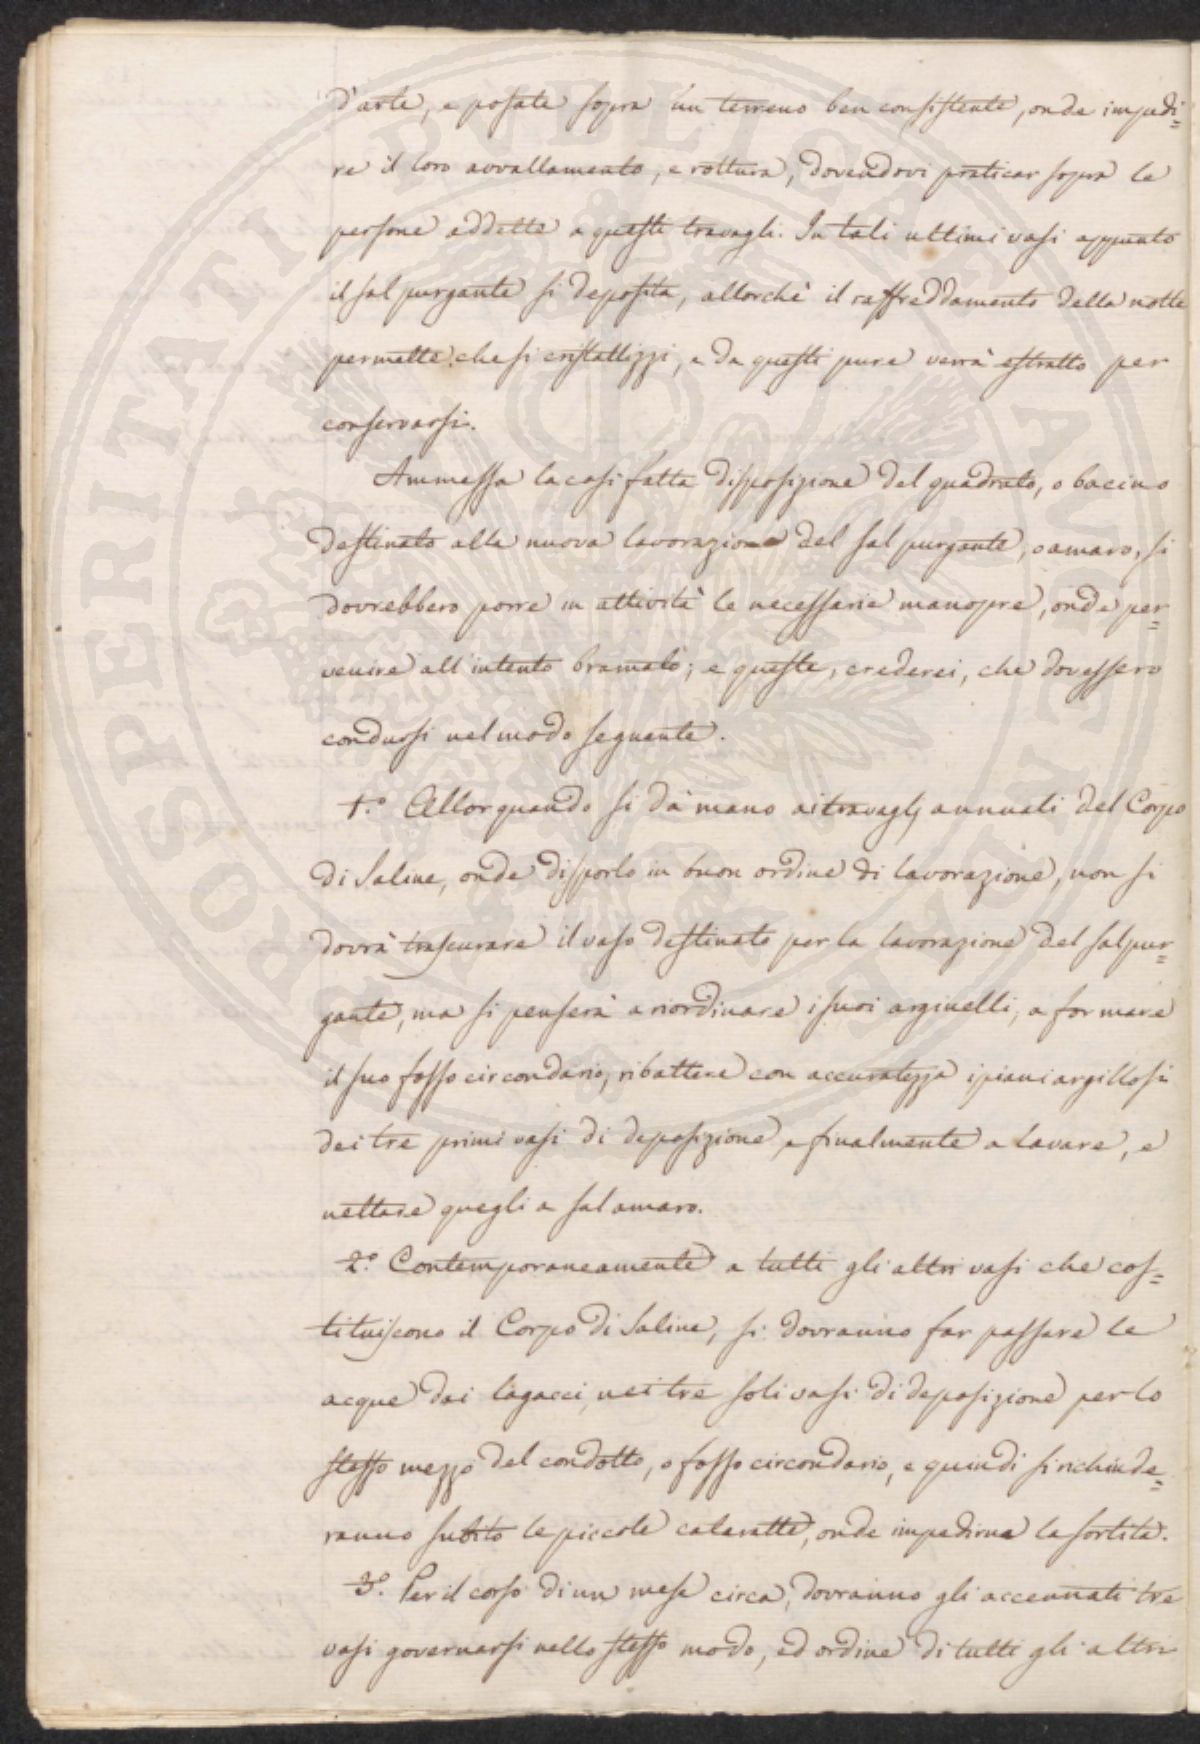 d'arte, e posate sopra un terreno ben consistente, onde impedi=
re il loro avvallamento, e rottura, dovendovi praticar sopra le
persone addette a questi travagli. In tali ultimi vasi appunto
il sal purgante si deposita, allorchè il raffreddamento della notte
permette che si cristallizzi, e da questi pure verrà estratto per
conservarsi.
Ammessa la così fatta disposizione del quadrato, o bacino
destinato alla nuova lavorazione del sal purgante, o amaro, si
dovrebbero porre in attività le necessarie manopre, onde per=
venire all'intento bramato; e queste, crederei, che dovessero
condursi nel modo seguente.
1.º Allorquando si dà mano ai travaglj annuali del Corpo
di Saline, onde disporlo in buon ordine di lavorazione, non si
dovrà trascurare il vaso destinato per la lavorazione del sal pur=
gante, ma si penserà a riordinare i suoi arginelli, a formare
il suo fosso circondario, ribattere con accuratezza i piani argillosi
dei tre primi vasi di deposizione, e finalmente a lavare, e
nettare quegli a sal amaro.
2.º Contemporaneamente a tutti gli altri vasi che cos=
tituiscono il Corpo di Saline, si dovranno far passare le
acque dai lagacci, nei tre soli vasi di deposizione per lo
stesso mezzo del condotto, o fosso circondario, e quindi si richiude=
ranno subito le piccole cataratte, onde impedirne la sortita.
3.º Per il corso di un mese circa, dovranno gli accennati tre
vasi governarsi nello stesso modo, ed ordine di tutti gli altri
PROSPERITATI PVBLICAE AVGENDAE